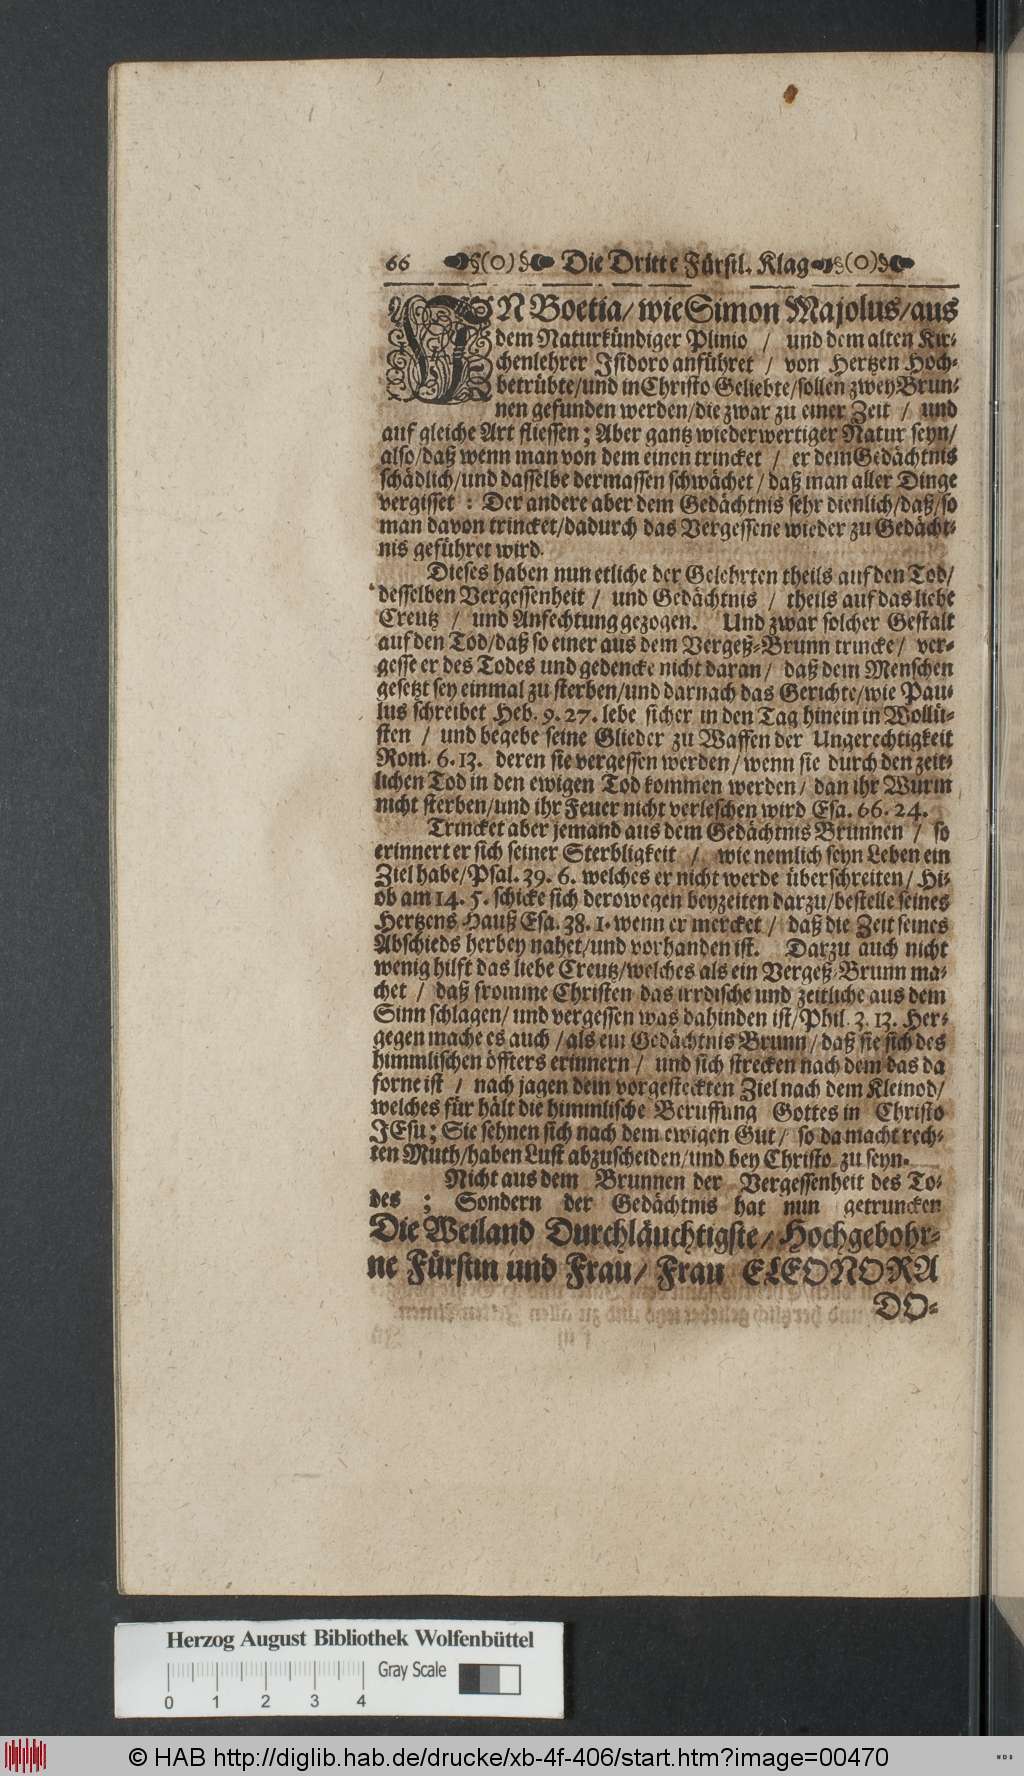 66 §(o)§ Die Dritte Fürstl. Klag §(o)§
IN Boetia/ wie Simon Majolus/aus
dem Naturkündiger Plinio / und dem alten Kir-
chenlehrer Isidoro anführet / von Hertzen Hoch-
betrübte/und in Christo Geliebte/sollen zwey Brun-
nen gefunden werden/die zwar zu einer Zeit / und
auf gleiche Art fliessen; Aber gantz wiederwertiger Natur seyn/
also/daß wenn man von dem einen trincket / er dem Gedächtnis
schädlich/und dasselbe dermassen schwächet/ daß man aller Dinge
vergisset : Der andere aber dem Gedächtnis sehr dienlich/daß/so
man davon trincket/dadurch das Vergessene wieder zu Gedächt-
nis geführet wird.
Dieses haben nun etliche der Gelehrten theils auf den Tod/
desselben Vergessenheit / und Gedächtnis / theils auf das liebe
Creutz / und Anfechtung gezogen. Und zwar solcher Gestalt
auf den Tod/daß so einer aus dem Vergeß-Brunn trincke/ ver-
gesse er des Todes und gedencke nicht daran/ daß dem Menschen
gesetzt sey einmal zu sterben/und darnach das Gerichte/wie Pau-
lus schreibet Heb. 9. 27. lebe sicher in den Tag hinein in Wollü-
sten / und begebe seine Glieder zu Waffen der Ungerechtigkeit
Rom. 6. 13. deren sie vergessen werden/ wenn sie durch den zeit-
lichen Tod in den ewigen Tod kommen werden/ dan ihr Wurm
nicht sterben/und ihr Feuer nicht verleschen wird Esa. 66. 24.
Trincket aber jemand aus dem Gedächtnis Brunnen / so
erinnert er sich seiner Sterbligkeit / wie nemlich seyn Leben ein
Ziel habe/Psal. 39. 6. welches er nicht werde überschreiten/ Hi-
ob am 14. 5. schicke sich derowegen beyzeiten darzu/bestelle seines
Hertzens Hauß Esa. 38. 1. wenn er mercket / daß die Zeit seines
Abschieds herbey nahet/und vorhanden ist. Darzu auch nicht
wenig hilft das liebe Creutz/welches als ein Vergeß-Brunn ma-
chet / daß fromme Christen das irrdische und zeitliche aus dem
Sinn schlagen/ und vergessen was dahinden ist/Phil. 3. 13. Her-
gegen mache es auch /als ein Gedächtnis Brunn/ daß sie sich des
himmlischen öffters erinnern / und sich strecken nach dem das da
forne ist / nach jagen dem vorgesteckten Ziel nach dem Kleinod/
welches für hält die himmlische Beruffung Gottes in Christo
JEsu; Sie sehnen sich nach dem ewigen Gut/ so da macht rech-
ten Muth/haben Lust abzuscheiden/und bey Christo zu seyn.
Nicht aus dem Brunnen der Vergessenheit des To-
des ; Sondern der Gedächtnis hat nun getruncken
Die Weiland Durchläuchtigste/ Hochgebohr-
ne Fürstin und Frau/ Frau ELEONORA
DO-
Herzog August Bibliothek Wolfenbüttel
Gray Scale
0 1 2 3 4
© HAB http://diglib.hab.de/drucke/xb-4f-406/start.htm?image=00470